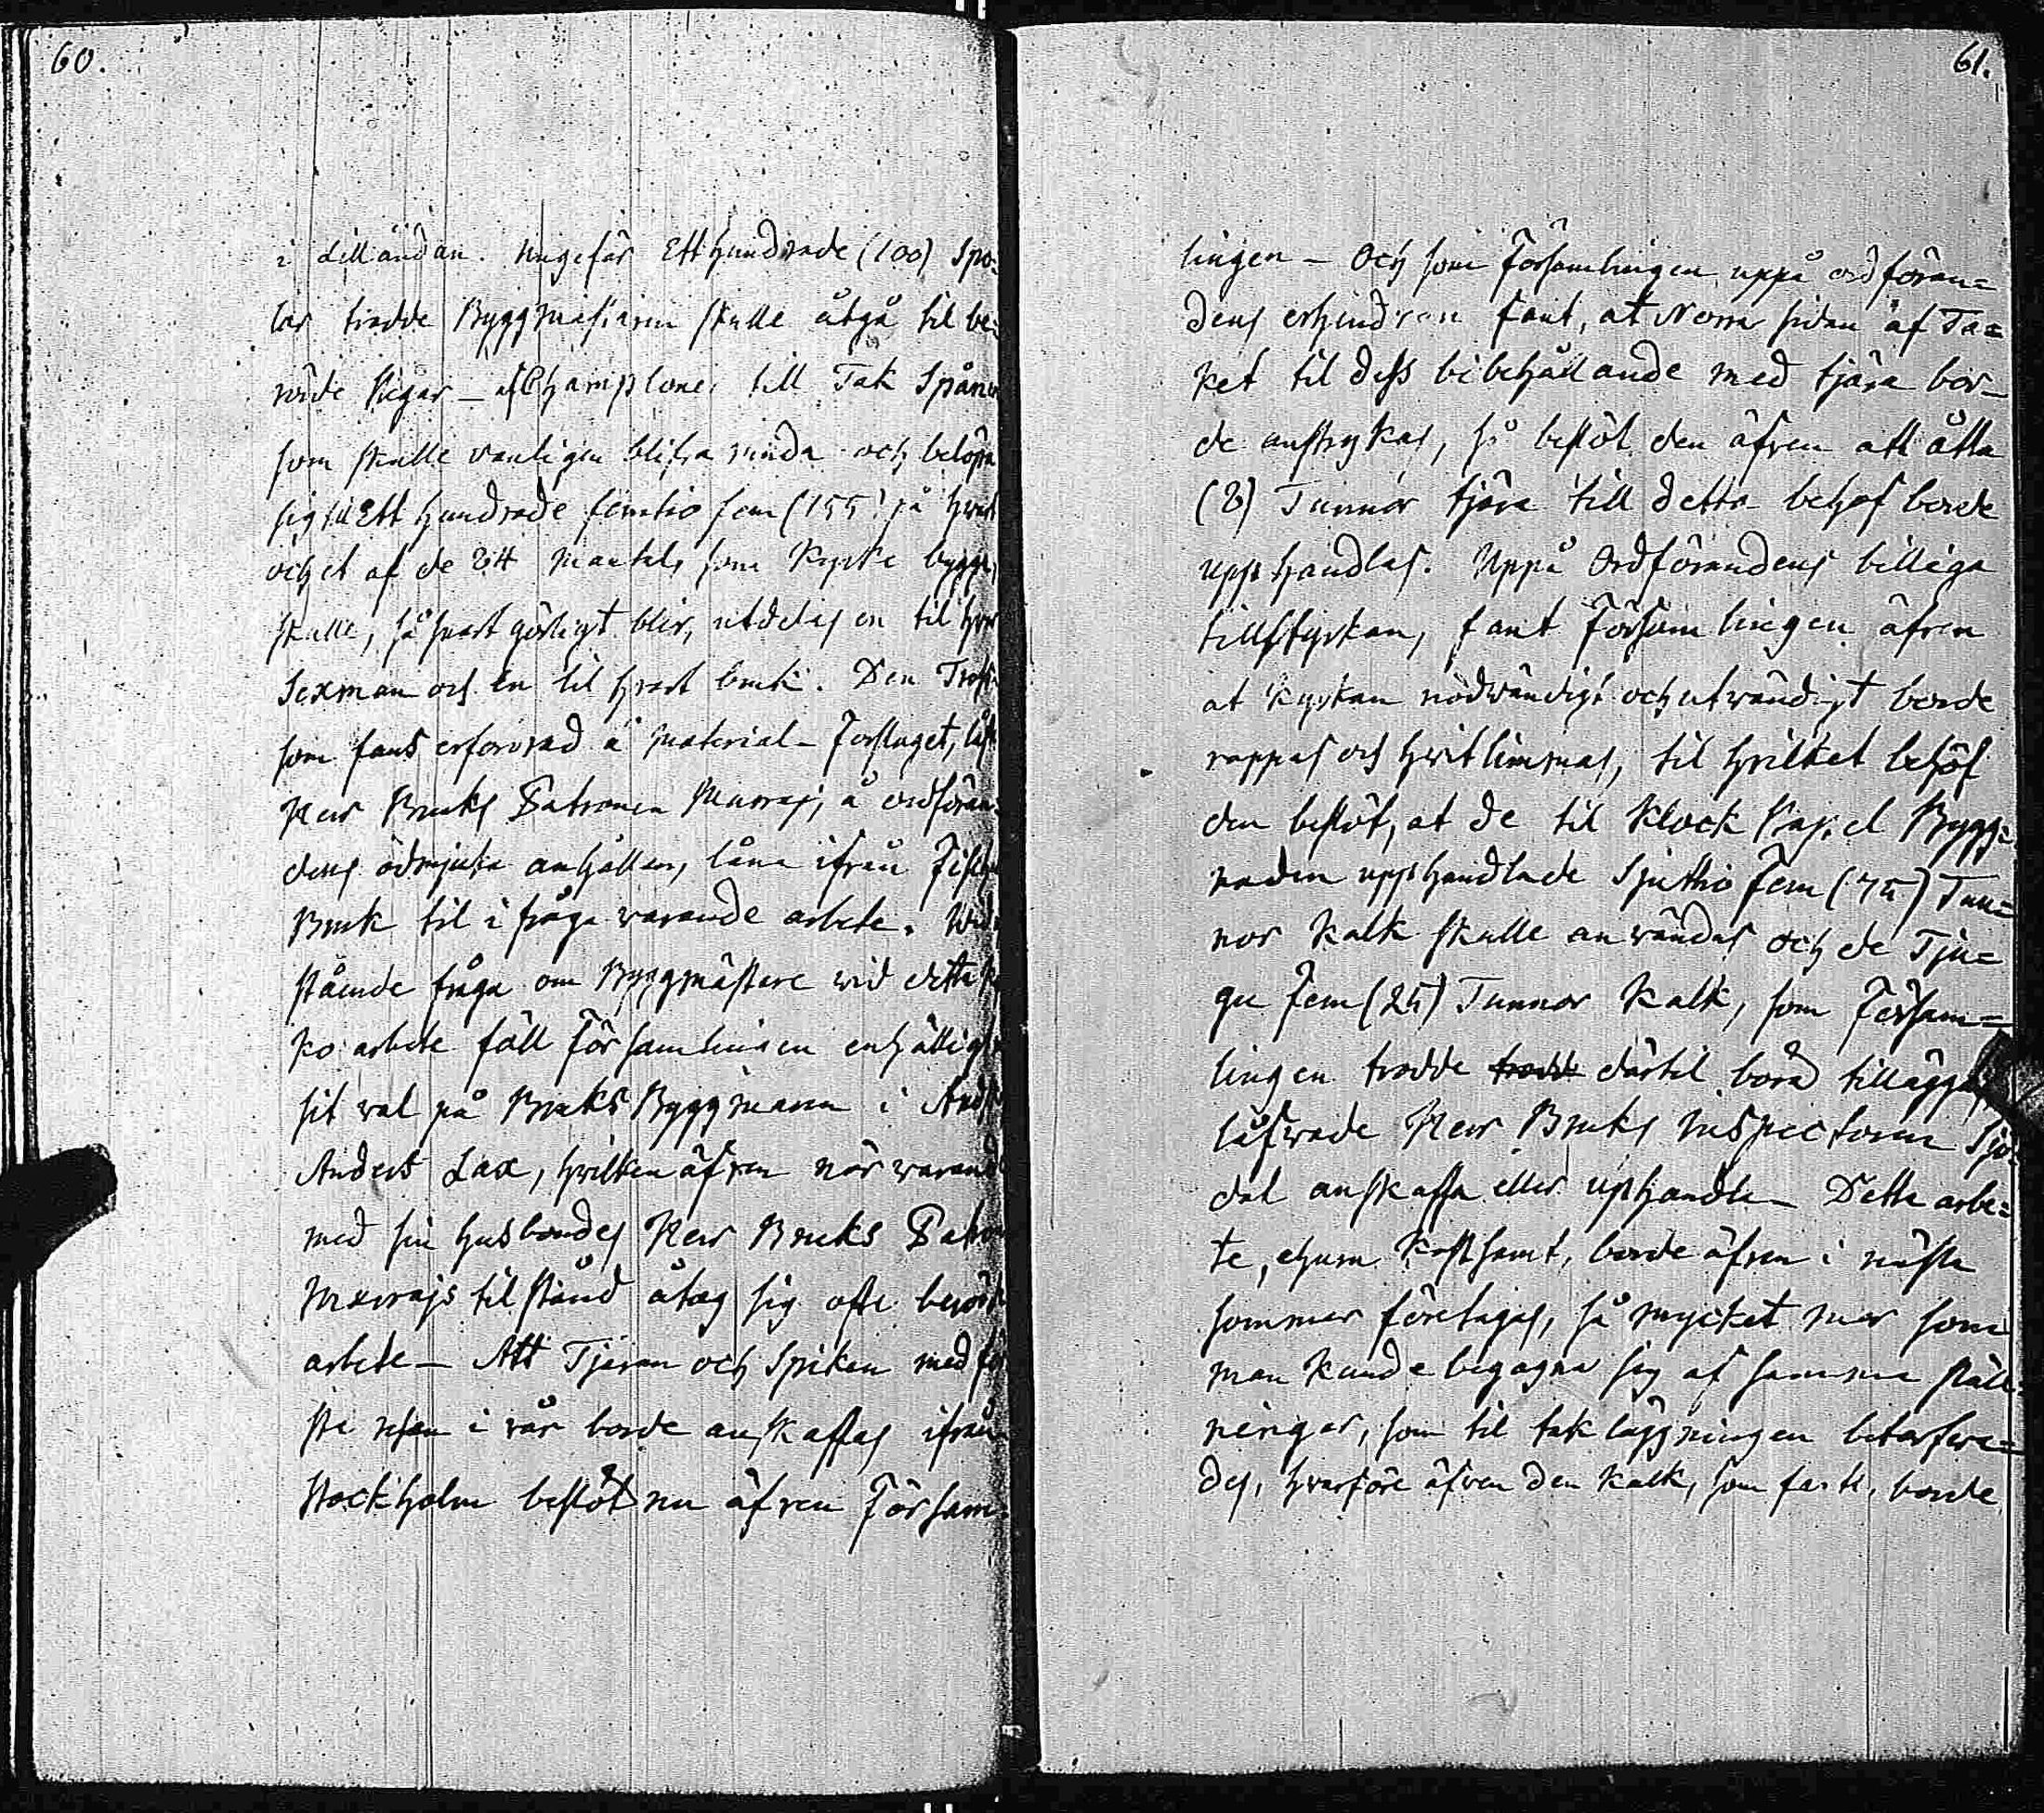 60.
i Lilländan. Ungefär Ett hundrade (100) Spo-
lar trodde Byggmästaren skulle åtgå til be-
rörde stegar _ af Champloner till Tak Spånen
som skulle vanligen blifva runda och belöpa
sig til Ett hundrade femtio fem (155) på hvart
och et af de 24 mantal, som Kyrka bygga,
skulle, så snart görligt blir, utdelas en til hvar
Sexman och En til hvart bruk. Den Tross
som fans erforrad å Material-Forslaget,
Herr Bruks Patronen Murray, å ordföran-
dens ödmjuka anhållan, låna ifrån
Bruk til i fråga varande arbete.
stående fråga om Byggmästare wid detta
ko arbete föll Församlingen enhälligt
sit val på Bruks Byggmann i
Anders Lax, hvilken äfven när varande
med sin husbondes Herr Bruks Patron
Murrays tilstånd åtog sig ofta berörde
arbete _ Att Tjeran och Spiken med för
sta resan i vår borde anskaffas ifrån
Stockholm beslöt nu äfven Försam-
61.
lingen _ Och som Församlingen uppå ordföran=
dens erhindran fant, at Norra sidan af Ta=
ket til dess bibehållande med tjära bor_
de anstrykas, så beslöt den äfven att åtta
(8) Tunnor tjära till detta behof borde
upphandlas. Uppå Ordförandens billiga
tillstyrkan, fant Församlingen äfven
at Kyrkan nödwändigt och utwändigt borde
rappas och hwitlimmas, til hvilket behof
den beslöt, at de til Klock Kapel Bygg=
naden upphandlade Sjuttio Fem (75) Tun=
nor Kalk skulle användas och de Tju=
gu Fem (25) Tunnor Kalk, som Försam=
lingen trodde trodde därtil borde tilläggas
låfvade Herr Bruks Inspectoren Sjö-
dal anskaffa eller uphandla _ Detta arbe=
te, ehuru Kostsamt, borde äfven i nästa
sommar företagas, så mycket mer som
man kunde begagna sig af samma ställ-
ningar, som til takläggningen betarfwa=
des, hvarföre äfven den Kalk, som , borde